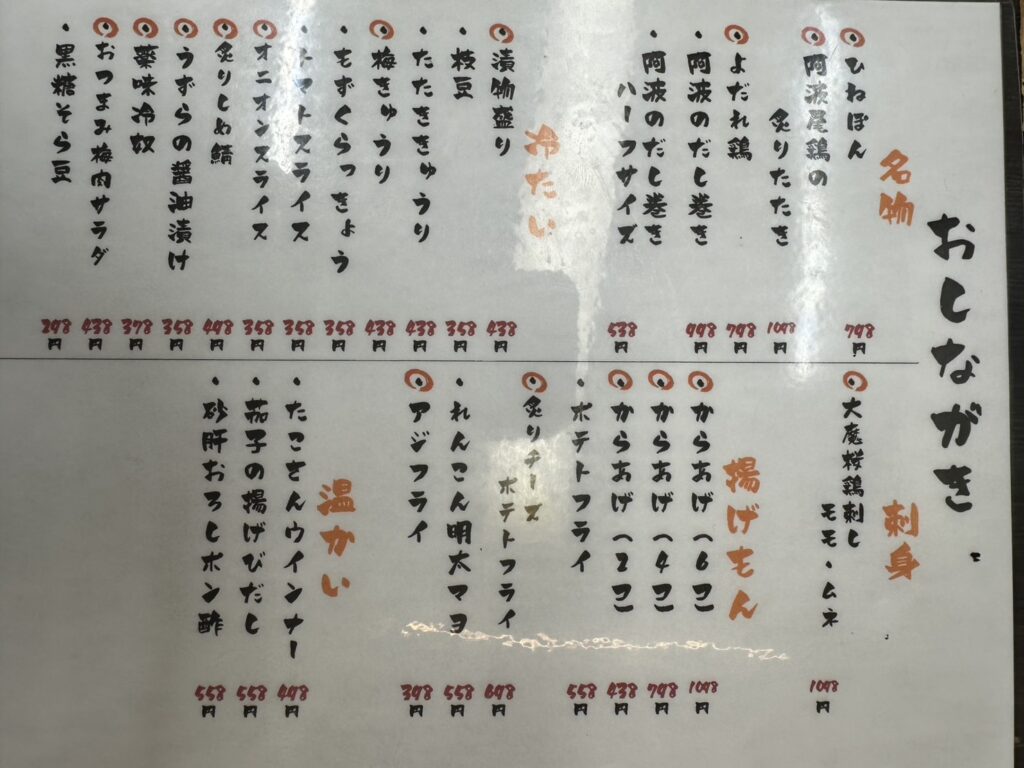 おしながき
名物
ひねぽん
798円
阿波尾鶏の
炙りたたき
1098円
よだれ鶏
798円
阿波のだし巻き
998円
阿波のだし巻き
ハーフサイズ
538円
冷たい
漬物盛り
438円
枝豆
358円
たたききゅうり
438円
梅きゅうり
438円
もずくらっきょう
358円
トマトスライス
358円
オニオンスライス
358円
炙りしめ鯖
498円
うずらの醤油漬け
358円
薬味冷奴
378円
おつまみ梅肉サラダ
438円
黒糖そら豆
298円
刺身
大魔桜鶏刺し
モモ・ムネ
1098円
揚げもん
からあげ(6コ)
1098円
からあげ(4コ)
798円
からあげ(2コ)
438円
ポテトフライ
558円
炙りチーズ
ポテトフライ
698円
れんこん明太マヨ
558円
アジフライ
398円
温かい
たこさんウインナー
498円
茄子の揚げびだし
558円
砂肝おろしポン酢
558円